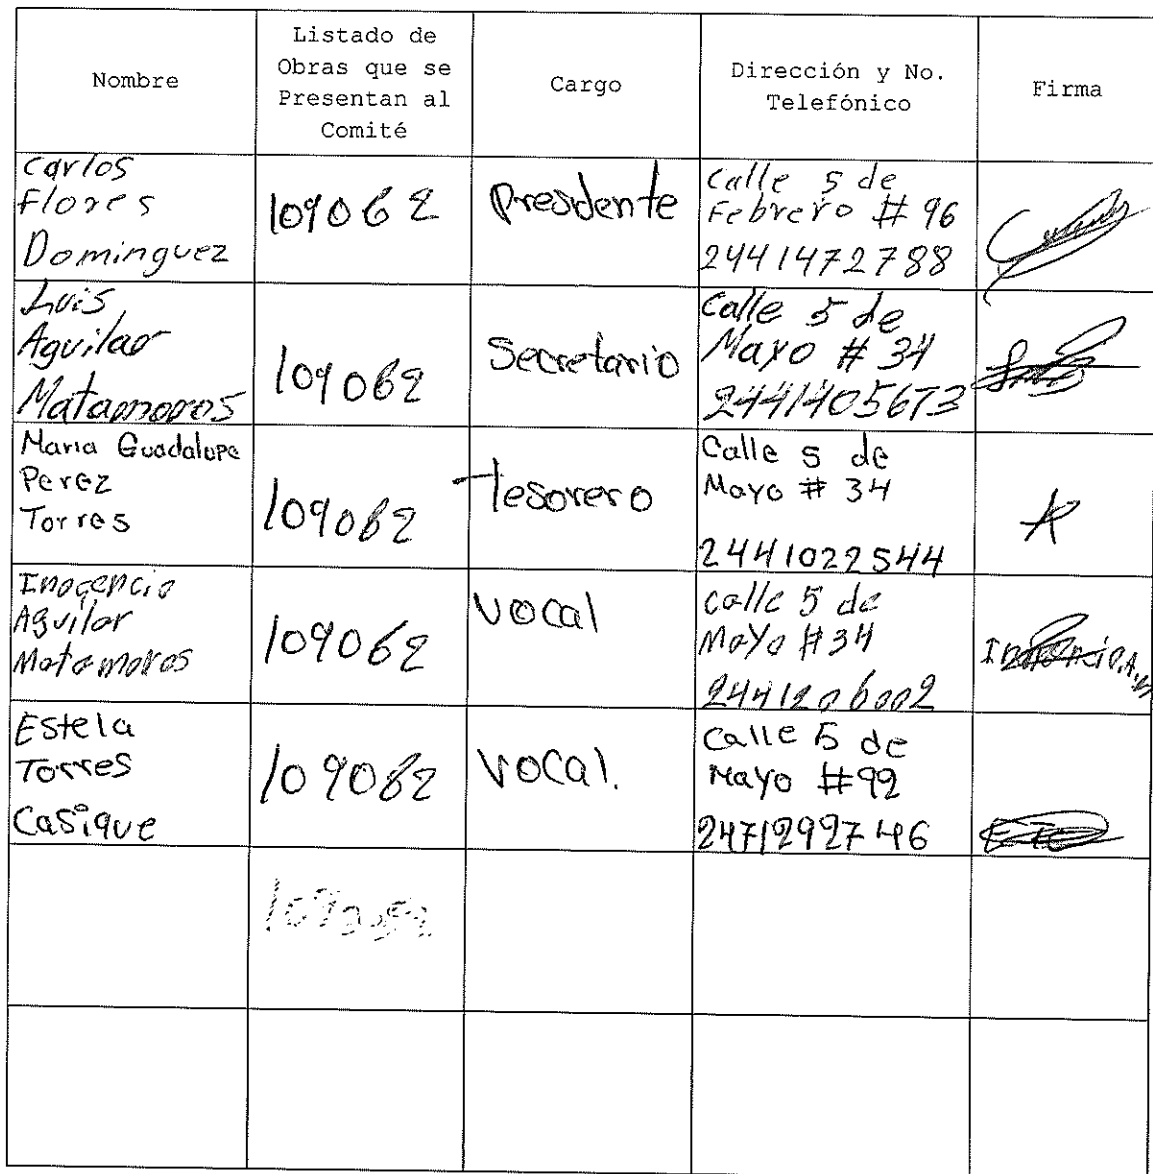 Nombre
Listado de
Obras que se
Presentan al
Comité
Cargo
Dirección y No.
Telefónico
Firma
Carlos
Flores
Dominguez
109062
Presidente
Calle 5 de
Febrero # 96
2441472788
Luis
Aguilar
Matamoros
109062
Secretario
Calle 5 de
Mayo # 34
2441405673
Maria Guadalupe
Perez
Torres
109062
Tesorero
Calle 5 de
Mayo # 34
2441022544
Inocencio
Aguilar
Matamoros
109062
vocal
calle 5 de
Mayo #34
2441206002
Estela
Torres
Casique
109062
vocal.
calle 5 de
Mayo #92
2471292746